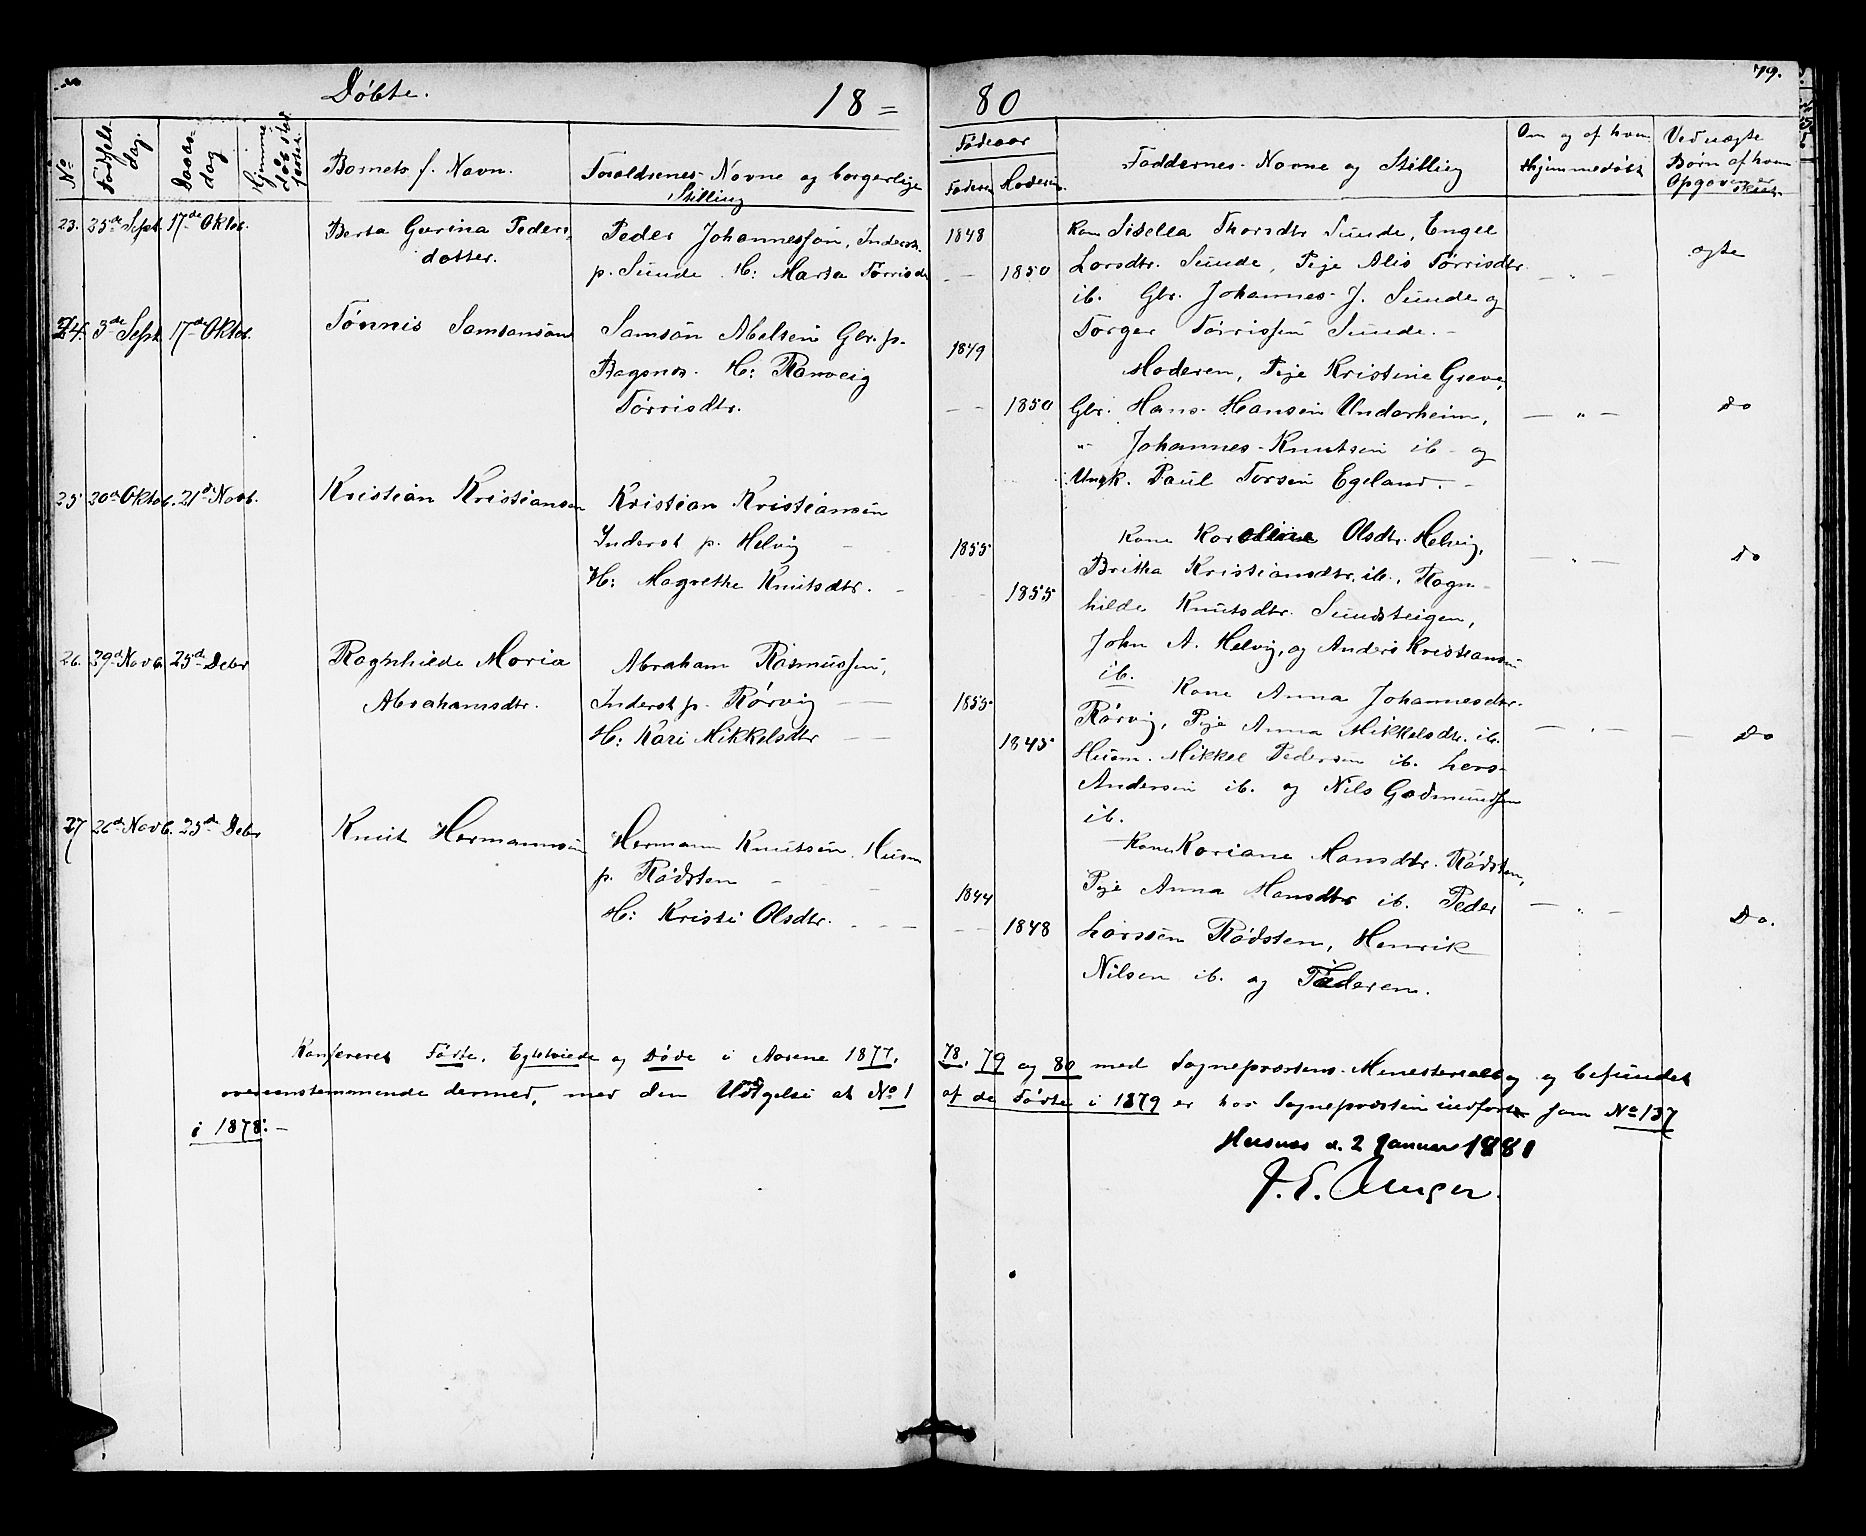 Døbte.
18=
80
79.
No
Fødsels-
dag.
Daabs-
dag
Hjemme
døbt
Barnets f. Navn.
Forældrenes Navne og borgerlige
Stilling
Fødeaar
Faderen
Moderen.
Faddernes Navne og Stilling
Om og af hvem
Hjemmedøbt
Ved uægte
Børn af hvem
Opgaven er
skeet
23. 25de Sept. 17de Oktob.
Berta Gurina Peders-
datter.
Peder Johannesson, Inderst.
p. Sunde. H: Marta Tørrisdr
1848
1850
Kone Sisella Thorsdtr Sunde, Engel
Larsdtr. Sunde, Pige Alis Tørrisdtr.
ib. Gbr. Johannes J. Sunde og
Torger Tørrissen Sunde.
ægte
24. 3de Sept. 17de Oktob.
Tønnis Samsonsøn
Samson Abelsen Gbr. p.
Bagsnes. H: Ranveig
Tørrisdtr.
1849
1850
Moderen, Pige Kristine Greve,
Gbr. Hans Hansen Undarheim,
" Johannes Knutsen ib. og
Ungk. Paul Torsen Egeland.
Do
25 20de Oktob. 21de Novb.
Kristian Kristiansen
Kristian Kristiansen
Inderst p. Helvig
H: Magrethe Knutsdtr.
1855
1855
Kone Karoline Olsdtr. Helvig,
Britha Kristiansdtr. ib., Ragn-
hilde Knutsdtr. Sundsteigen,
John A. Helvig, og Anders Kristiansen
ib.
Do
26. 29de Novb. 25de Debr
Ragnhilde Maria
Abrahamsdtr.
Abraham Rasmussen,
Inderst p. Rørvig
H: Kari Mikkelsdtr
1855
1845
Kone Anna Johannesdtr.
Rørvig, Pige Anna Mikkelsdtr. ib.
Husm. Mikkel Pedersen ib. Lars
Andersen ib. og Nils Godmundsen
ib.
Do
27 26de Novb. 25de Debr
Knut Hermannsen
Hermann Knutsen. Husm
p. Rødsten
H: Kristi Olsdtr.
1844
1848
Kone Kariane Hansdtr. Rødsten,
Pige Anna Hansdtr ib. Peder
Larssen Rødsten, Henrik
Nilsen ib. og Faderen.
Do.
Konfereret Fødte, Egteviede og Døde i Aarene 1877, 78, 79 og 80 med Sogneprestens Ministerialbog og befundet
overensstemmende dermed, med den Undtagelse at No 1 af de Fødte i 1879 er hos Sognepresten indført som No 137
i 1878.
Husnes d. 2 Januar 1881
J. E. Unger.